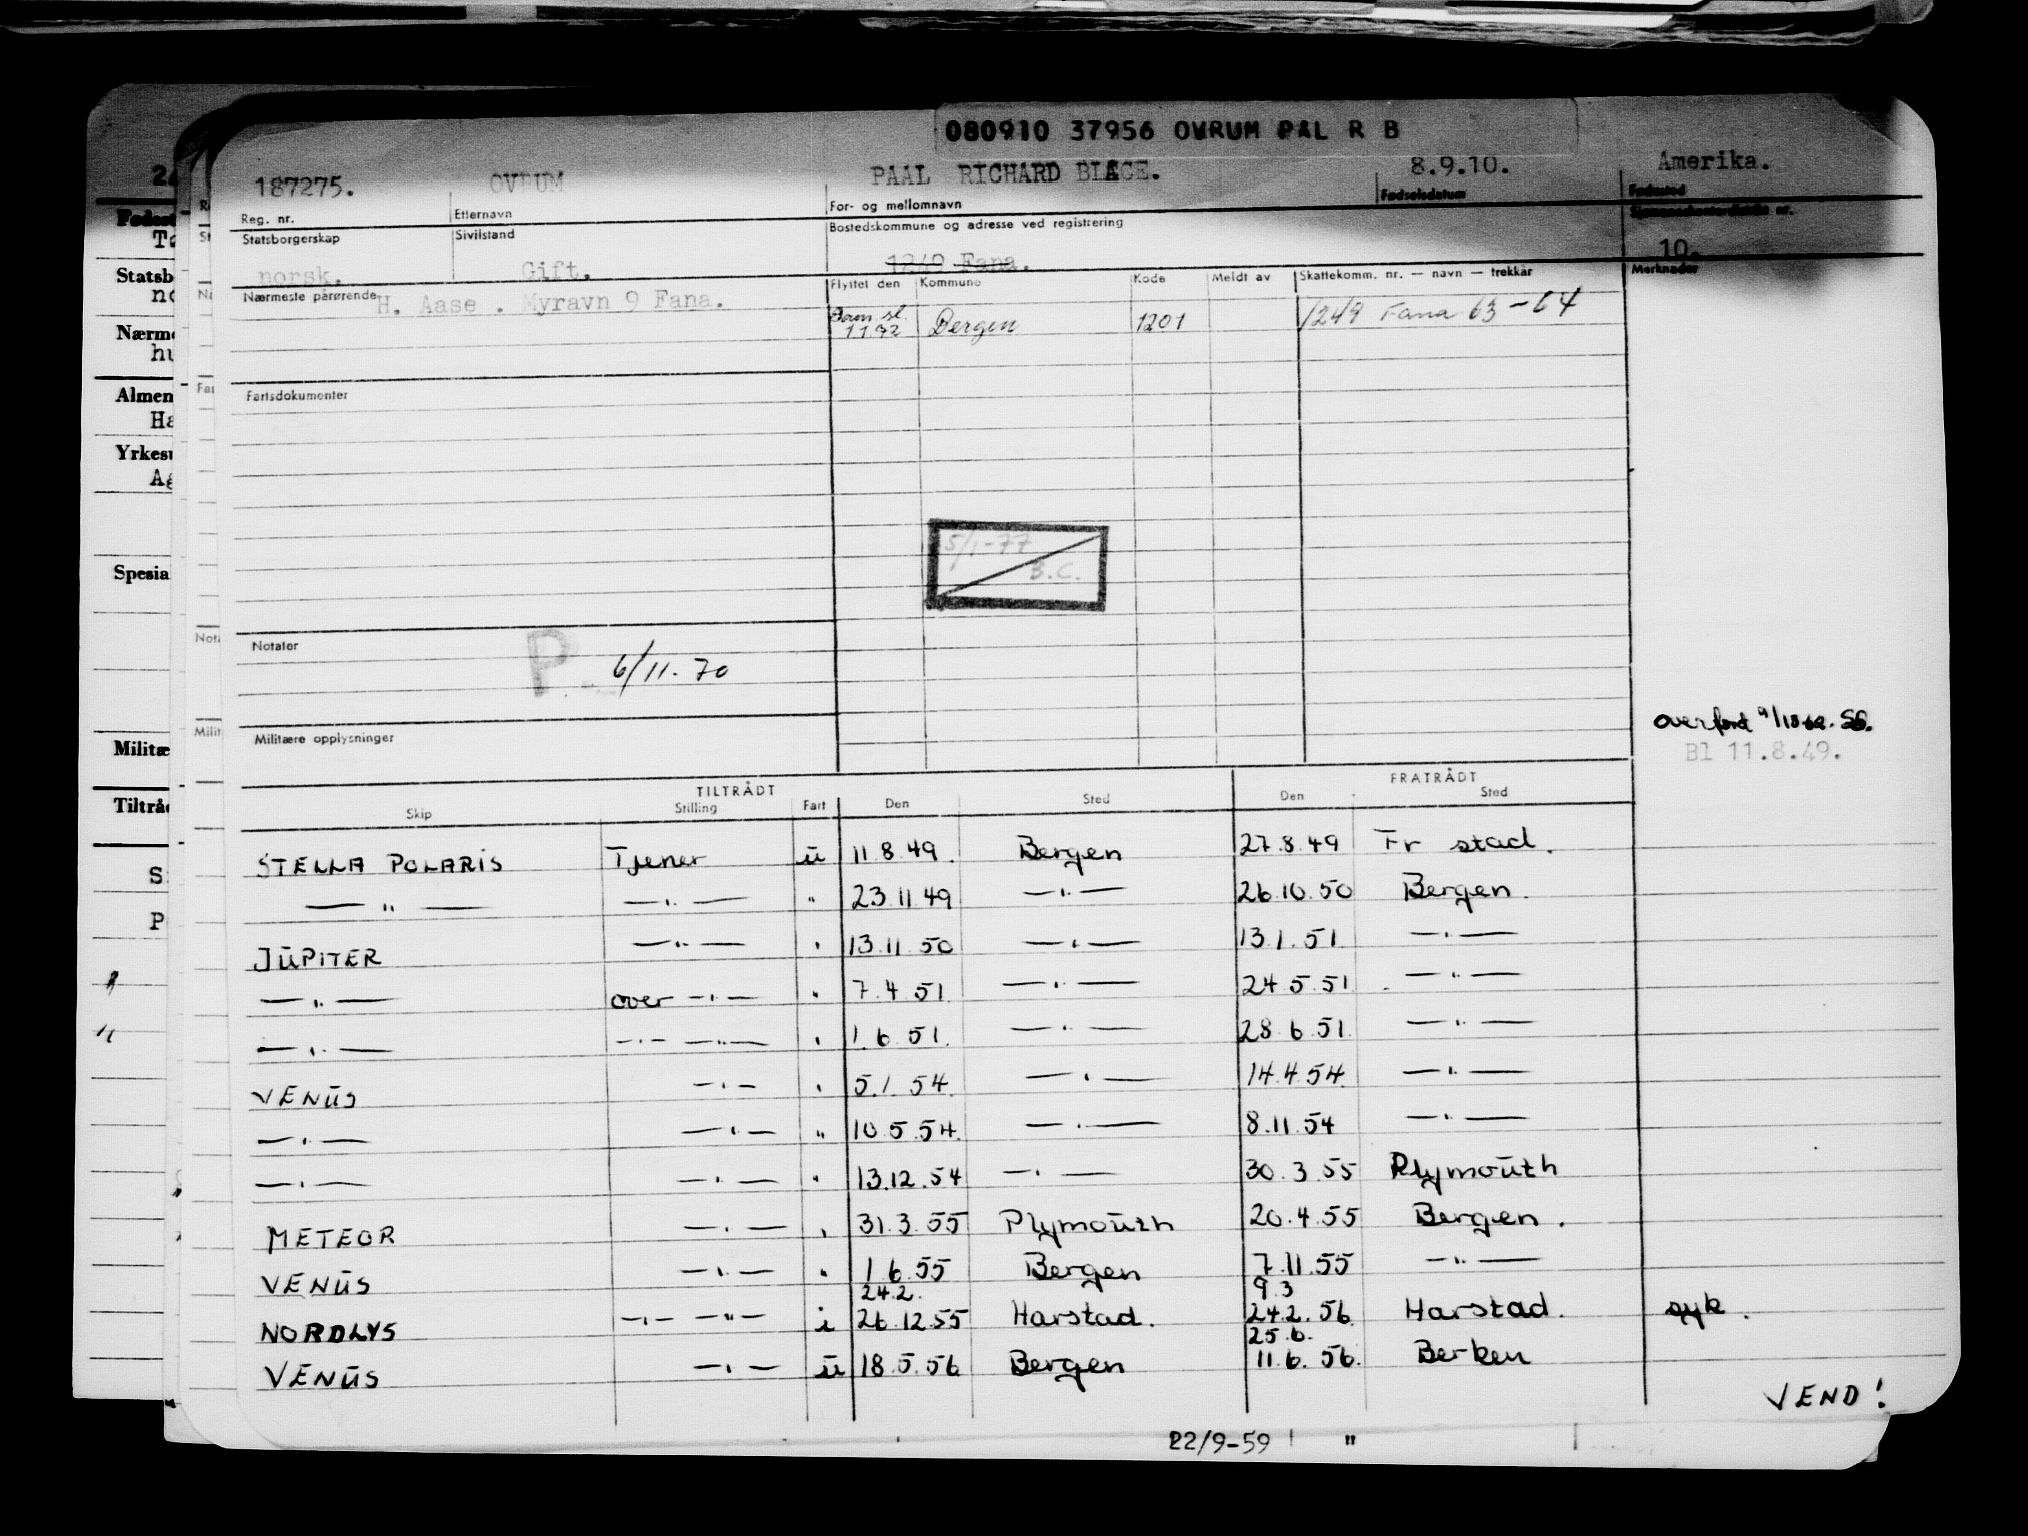 080910 37956 OVRUM PAL R B
187275. OVRUM PAAL RICHARD BLACE. 8.9.10. Amerika.
Reg. nr. Etternavn For- og mellomnavn Fødselsdatum Fødested
Statsborgerskap Sivilstand Bostedskommune og adresse ved registrering
norsk. Gift. 1249 Fana. 10.
Nærmeste pårørende H. Aase . Myravn 9 Fana. Flyttet den Kommune Kode Meldt av Skattekomm. nr. — navn — trekkår Merknader
1.1.72 Bergen 1201 1249 Fana 63-64
Fartsdokumenter
5/1-77
B.C.
Notater
P 6/11-70
Militære opplysninger
Bl 11.8.49.
TILTRÅDT FRATRÅDT
Skip Stilling Fart Den Sted Den Sted
STELLA POLARIS Tjener u 11.8.49. Bergen 27.8.49 Fr stad.
—"— —"— " 23.11.49 —"— 26.10.50 Bergen.
JUPITER —"— " 13.11.50 —"— 13.1.51 —"—
—"— over —"— " 7.4.51. —"— 24.5.51. —"—
—"— —"— —"— " 1.6.51. —"— 28.6.51. —"—
VENUS —"— " 5.1.54. —"— 14.4.54. —"—
—"— —"— " 10.5.54. —"— 8.11.54 —"—
—"— —"— " 13.12.54 —"— 30.3.55 Plymouth
METEOR —"— " 31.3.55 Plymouth 20.4.55 Bergen.
VENUS —"— " 1.6.55 Bergen 7.11.55 —"—
24.2. 9.3
NORDLYS —"— —"— i 26.12.55 Harstad. 24.2.56. Harstad. syk.
25.6.
VENUS —"— u 18.5.56 Bergen 11.6.56. Berken
VEND!
22/9-59 "
Statsb
Nærme
hu
Almen
Ha
Yrkesu
Ag
Spesia
Militæ
Tiltråd
S
P